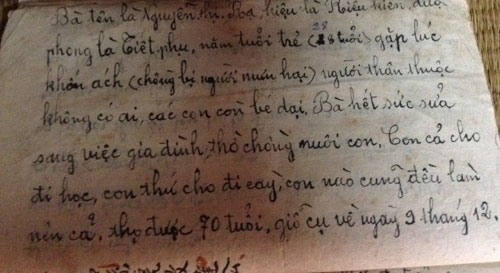 Bà tên là Nguyễn thị Ba, hiệu là Hiếu hiền, được
phong là Tiết phụ, năm tuổi trẻ (28 tuổi) gặp lúc
khốn ách (chồng bị người mưu hại) người thân thuộc
không có ai, các con còn bé dại. Bà hết sức sửa
sang việc gia đình thờ chồng nuôi con. Con cả cho
đi học, con thứ cho đi cày, con nào cũng đều làm
nên cả. thọ được 70 tuổi, giỗ cụ về ngày 9 tháng 12.